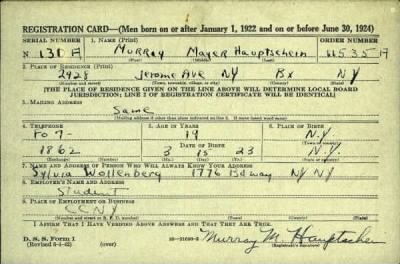 REGISTRATION CARD—(Men born on or after January 1, 1922 and on or before June 30, 1924)
SERIAL NUMBER 1. NAME (Print) ORDER NUMBER
N 131 A Murray Mayer Hauptschein 11535 A
(First) (Middle) (Last)
2. PLACE OF RESIDENCE (Print)
2928 Jerome Ave NY Bx NY
(Number and street) (Town, township, village, or city) (County) (State)
[THE PLACE OF RESIDENCE GIVEN ON THE LINE ABOVE WILL DETERMINE LOCAL BOARD
JURISDICTION; LINE 2 OF REGISTRATION CERTIFICATE WILL BE IDENTICAL]
3. MAILING ADDRESS
Same
[Mailing address if other than place indicated on line 2. If same insert word same]
4. TELEPHONE 5. AGE IN YEARS 6. PLACE OF BIRTH
FO 7- 19 N.Y.
DATE OF BIRTH (Town or county)
1862 3 15 23 N.Y.
(Exchange) (Number) (Mo.) (Day) (Yr.) (State or country)
7. NAME AND ADDRESS OF PERSON WHO WILL ALWAYS KNOW YOUR ADDRESS
Sylvia Wollenberg 1776 Bdway NY NY
8. EMPLOYER'S NAME AND ADDRESS
Student
9. PLACE OF EMPLOYMENT OR BUSINESS
CCNY
(Number and street or R. F. D. number) (Town) (County) (State)
I AFFIRM THAT I HAVE VERIFIED ABOVE ANSWERS AND THAT THEY ARE TRUE.
D. S. S. Form 1
(Revised 6-9-42) (over) Murray M. Hauptschein
(Registrant's signature)